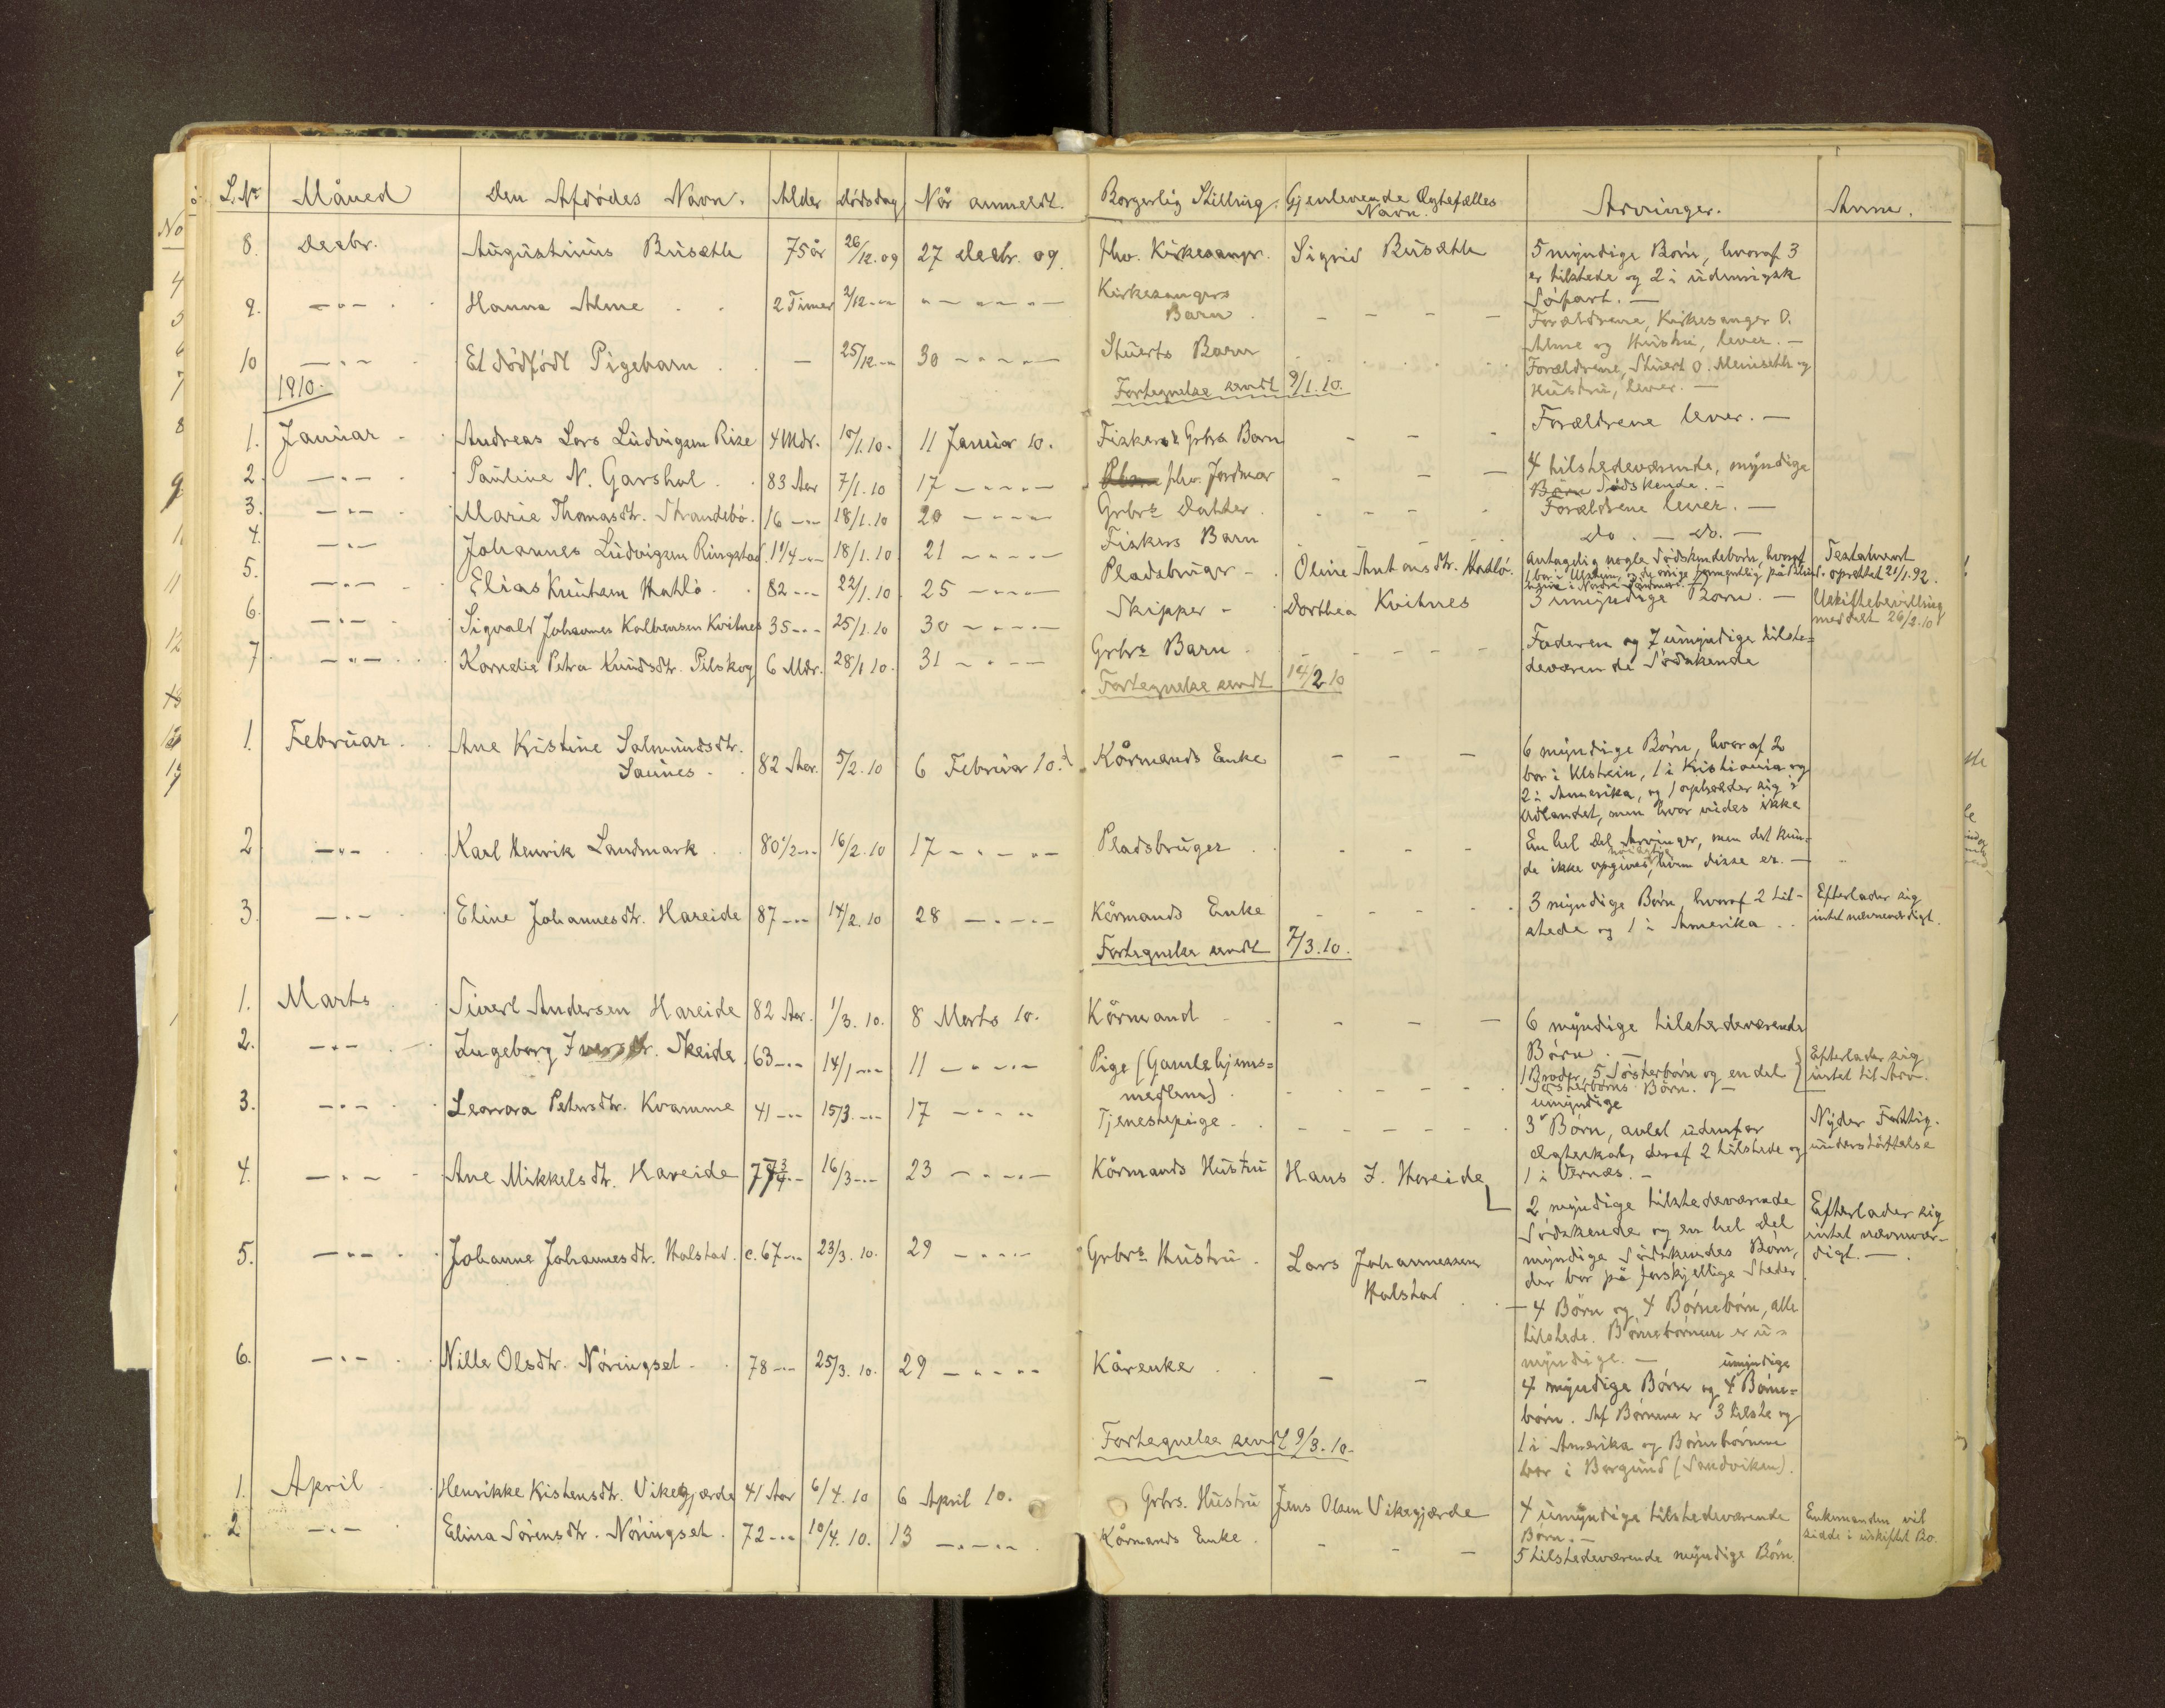 L.Nr Måned Den Afdödes Navn. Alder Dödsdag Når anmeldt. Borgerlig Stilling. Gjenlevende Ægtefælles Navn. Arvinger. Anm.
8. Decbr. Augustinus Busæth 75 år 26/12.09 27 Decbr. 09. fhv. Kirkesangr. Sigrid Busæth 5 myndige Börn, hvoraf 3
er tilstede og 2 i udenrigsk
Söfart. —
9. —"— Hanna Alme 2 Timer 2/12 -"- "—"—"— Kirkesangers
Barn - - - - Forældrene, Kirkesanger O.
Alme og Hustru, lever. —
10 —"— Et dödfödt Pigebarn — 25/12 -"- 30 —"—"— Stuerts Barn Forældrene, Stuert O. Meinseth og
Hustru, lever. —
1910. Fortegnelse sendt 9/1.10.
1. Januar Andreas Lars Ludvigsen Rise 4 Mdr. 10/1.10. 11 Januar 10. Fisker & Grbrs Barn - - - Forældrene lever. —
2. —"— Pauline N. Garshol 83 Aar 7/1.10 17 —"—"— fhv. Jordmor - - - 4 tilstedeværende, myndige
Börn Södskende. -
3. —"— Marie Thomasdtr. Strandebö. 16 -"- 18/1.10 20 —"—"— Grbrs Datter. - - - - Forældrene lever. —
4. —"— Johannes Ludvigsen Ringstad. 1 1/4 -"- 18/1.10. 21 —"—"— Fiskers Barn do. — do. —
5. —"— Elias Knutsen Hatlö. 82 -"- 22/1.10 25 —"—"— Pladsbruger - Oline Antonsdtr. Hatlö. Antagelig nogle Södskendebörn, hvoraf
1 bor i Ulstein, og de övrige formentlig på
i Nordre Söndmöre. Testament
oprettet 21/1.92.
6. —"— Sigvald Johannes Kolbensen Kvitnes 35 -"- 25/1.10 30 —"—"— Skipper - Dorthea Kvitnes 3 umyndige Born. — Uskiftebevilling
meddelt 26/2.10
7 —"— Kornelie Petra Knudsdtr. Pilskog 6 Mdr. 28/1.10. 31 —"—"— Grbrs Barn - - - - Faderen og 7 umyndige tilste=
deværende Södskende
Fortegnelse sendt 14/2 10
1. Februar. Ane Kristine Salmundsdtr.
Saunes. 82 Aar. 5/2.10 6 Februar 10. Kårmands Enke - - - 6 myndige Börn, hvoraf 2
bor i Ulstein, 1 i Kristiania og
2 i Amerika, og 1 opholder sig i
Udlandet, men hvor vides ikke
2 —"— Karl Henrik Landmark 80 1/2 -"- 16/2.10 17 —"—"— Pladsbruger - - - En hel Del Arvinger, men det kun-
de ikke opgives, hvem disse er. —
3. —"— Eline Johannesdtr. Hareide 87 -"- 14/2.10 28 —"—"— Kårmands Enke - - - - 3 myndige Börn, hvoraf 2 til-
stede og 1 i Amerika. Efterlader sig
intet nævneværdigt.
Fortegnelse sendt 7/3.10.
1. Marts Sivert Andersen Hareide 82 Aar. 1/3.10. 8 Marts 10. Kårmand - - - 6 myndige tilstedeværende
Börn. —
2. —"— Ingeborg Iversdtr. Skeide. 63 -"- 14/1 -"- 11 —"—"— Pige (Gamlehjems=
medlem) - - - - 1 Broder, 5 Sösterbörn og en del
Sösterbörns Börn. — Efterlader sig
intet til Arv.
3. —"— Leonora Petersdtr. Kvamme 41 -"- 15/3. -"- 17 —"—"— Tjenestepige - - - - - umyndige
3 Börn, avlet udenfor
ægteskab, deraf 2 tilstede og
1 i Vernæs. - Nyder Fattig-
understöttelse
4. —"— Ane Mikkelsdtr. Hareide 77 3/4 -"- 16/3 -"- 23 —"—"— Kårmands Hustru Hans J. Hareide 2 myndige tilstedeværende
Södskende og en hel Del
myndige Södskendes Börn,
der bor på forskjellige Steder Efterlader sig
intet nævnvær-
digt. —
5. —"— Johanne Johannesdtr. Halstad. c. 67 -"- 23/3.10. 29 —"—"— Grbrs Hustru. Lars Johannessen
Halstad — 4 Börn og 4 Börnebörn, alle
tilstede. Börnebörnene er u=
myndige. —
6. —"— Nille Olsdtr. Nöringset 78 -"- 25/3.10. 29 —"—"— Kårenke - - umyndige
4 myndige Börn og 4 Börne=
börn. Af Börnene er 3 tilste og
1 i Amerika og Börnebörnene
bor i Borgund (Sandviken).
Fortegnelse sendt 9/3.10.
1. April Henrikke Kistensdtr. Vikegjærde 41 Aar 6/4.10 6 April 10. Grbrs. Hustru Jens Olsen Vikegjærde 4 umyndige tilstedeværende
Born. — Enkemanden vil
sidde i uskiftet Bo.
2 —"— Elina Sörensdtr. Nöringset. 72 -"- 10/4.10. 13 —"—"— Kårmands Enke. - - - 5 tilstedeværende myndige Börn.